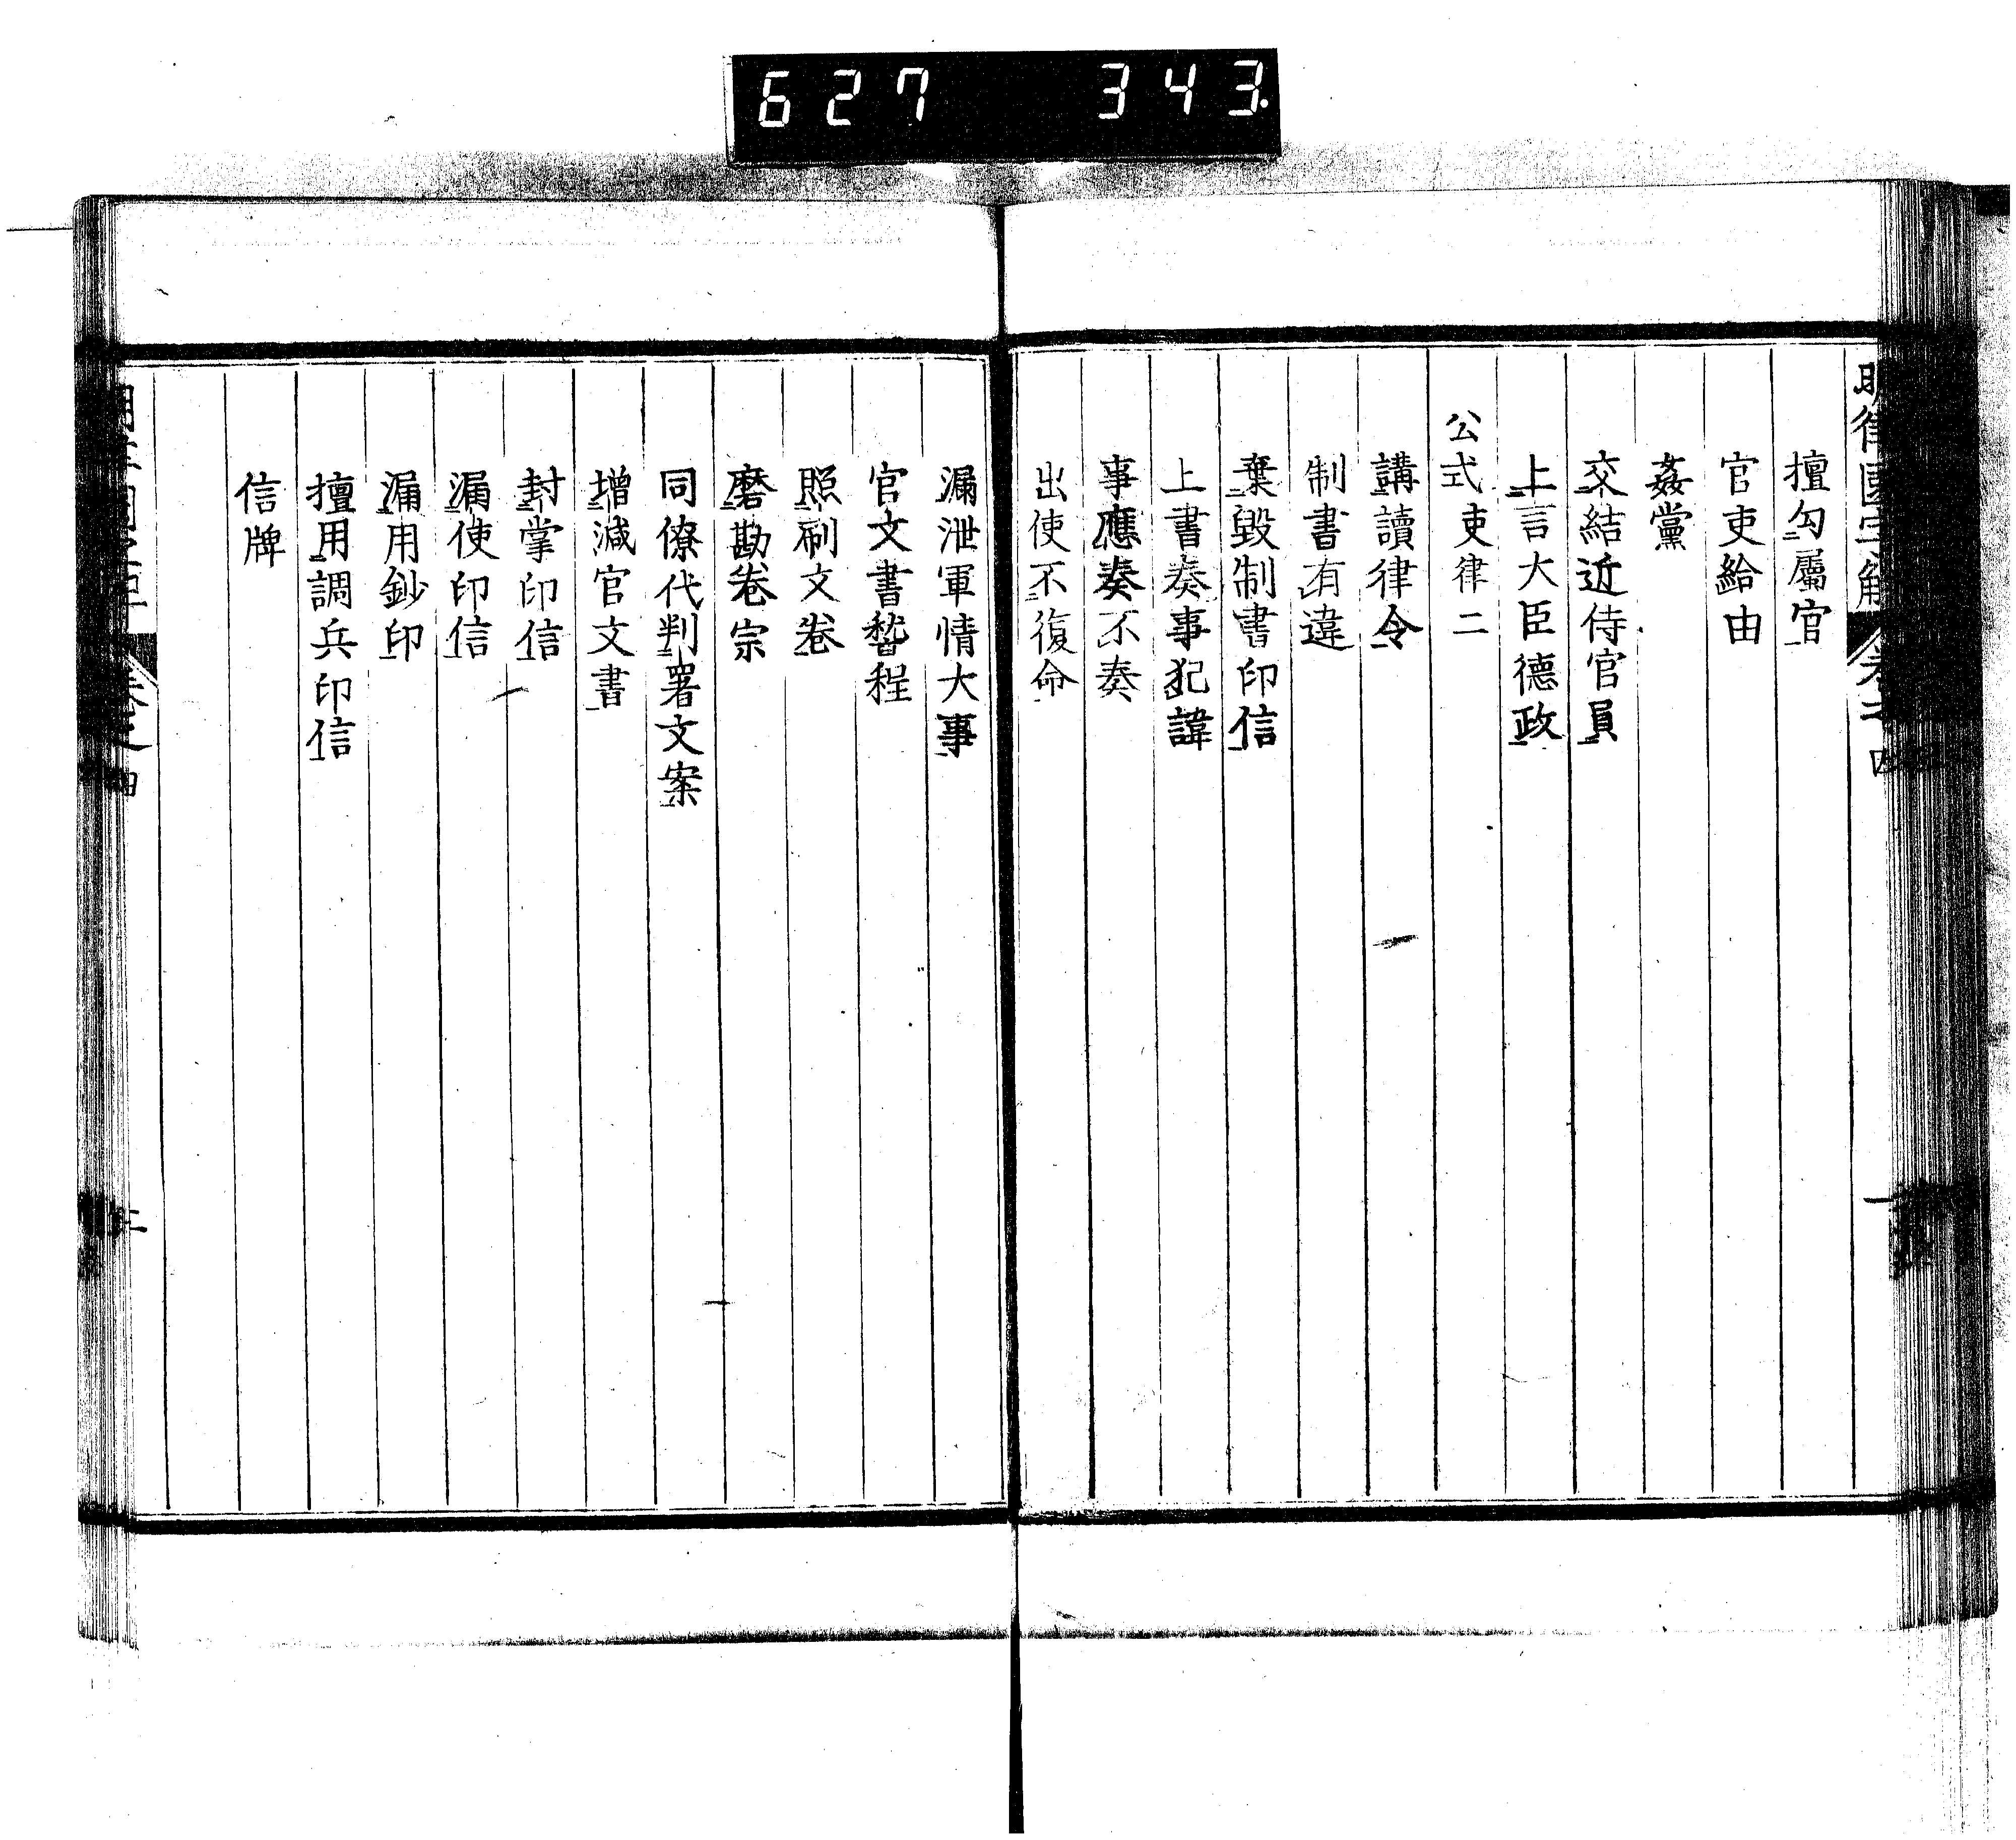 627 343
擅勾屬官
官吏給由
姦黨
交結近侍官員
上言大臣德政
公式吏律二
講讀律令
制書有違
棄毀制書印信
上書奏事犯諱
事應奏不奏
出使不復命
漏泄軍情大事
官文書稽程
照刷文卷
磨勘卷宗
同僚代判署文案
增減官文書
封掌印信
漏使印信
漏用鈔印
擅用調兵印信
信牌